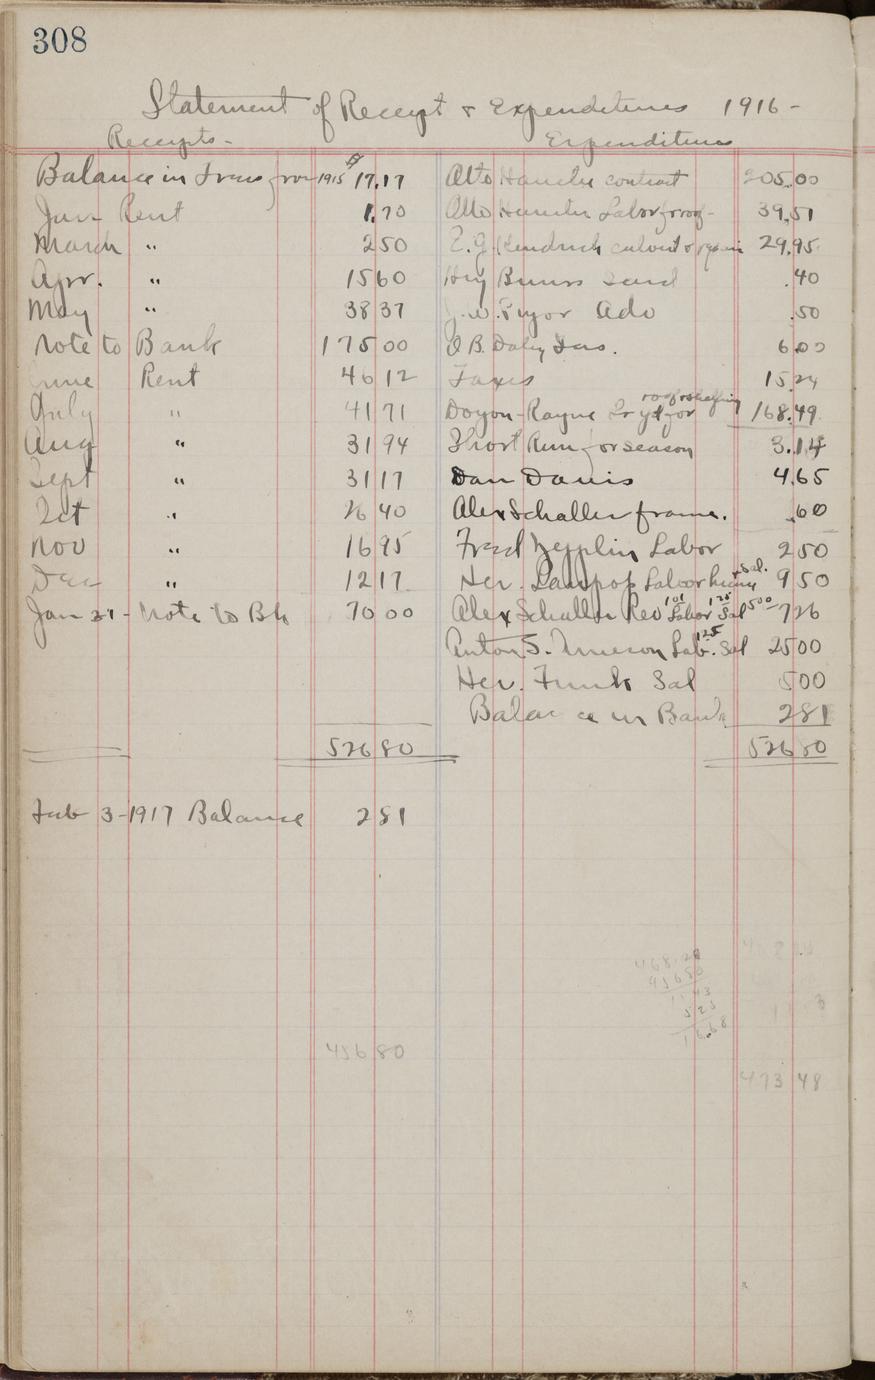 308
Statement of Receipt & Expenditures 1916 -
Receipts - Expenditures
Balance in Treas from 1915 17.17
Jan - Rent 1.70
March " 2 50
Apr. " 15 60
May " 38 37
Note to Bank 175 00
June Rent 46 12
July " 41 71
Aug " 31 94
Sept " 31 17
Oct " 26 40
Nov " 16 95
Dec " 12 17
Jan 31 - Note to Bk 70 00
526 80
Feb 3 - 1917 Balance 2 81
456 80
Otto contract 205.00
Otto Labor roof - 39.51
E.G. Kendrick culvert & repair 29.95
Hy Sand .40
J.W. Pryor Adv .50
O.B. Daley Ins. 6 00
Taxes 15.24
roof & shelving
Doyon - Rayne for 168.49
Short Run for season 3.14
Dan Davis 4.65
Alex Schaller frame. .60
Fred Zepplin Labor 2 50
Her. Labor & Sal. 9 50
Alex Schaller Rev 1 01 Labor 1 25 Sal 5 00 7 26
Anton S. Lab. 1 25 Sal 25 00
Her. Funk Sal 5 00
Balance in Bank 2 81
526 80
468.28
456 80
11 43
5 25
16.68
473 48